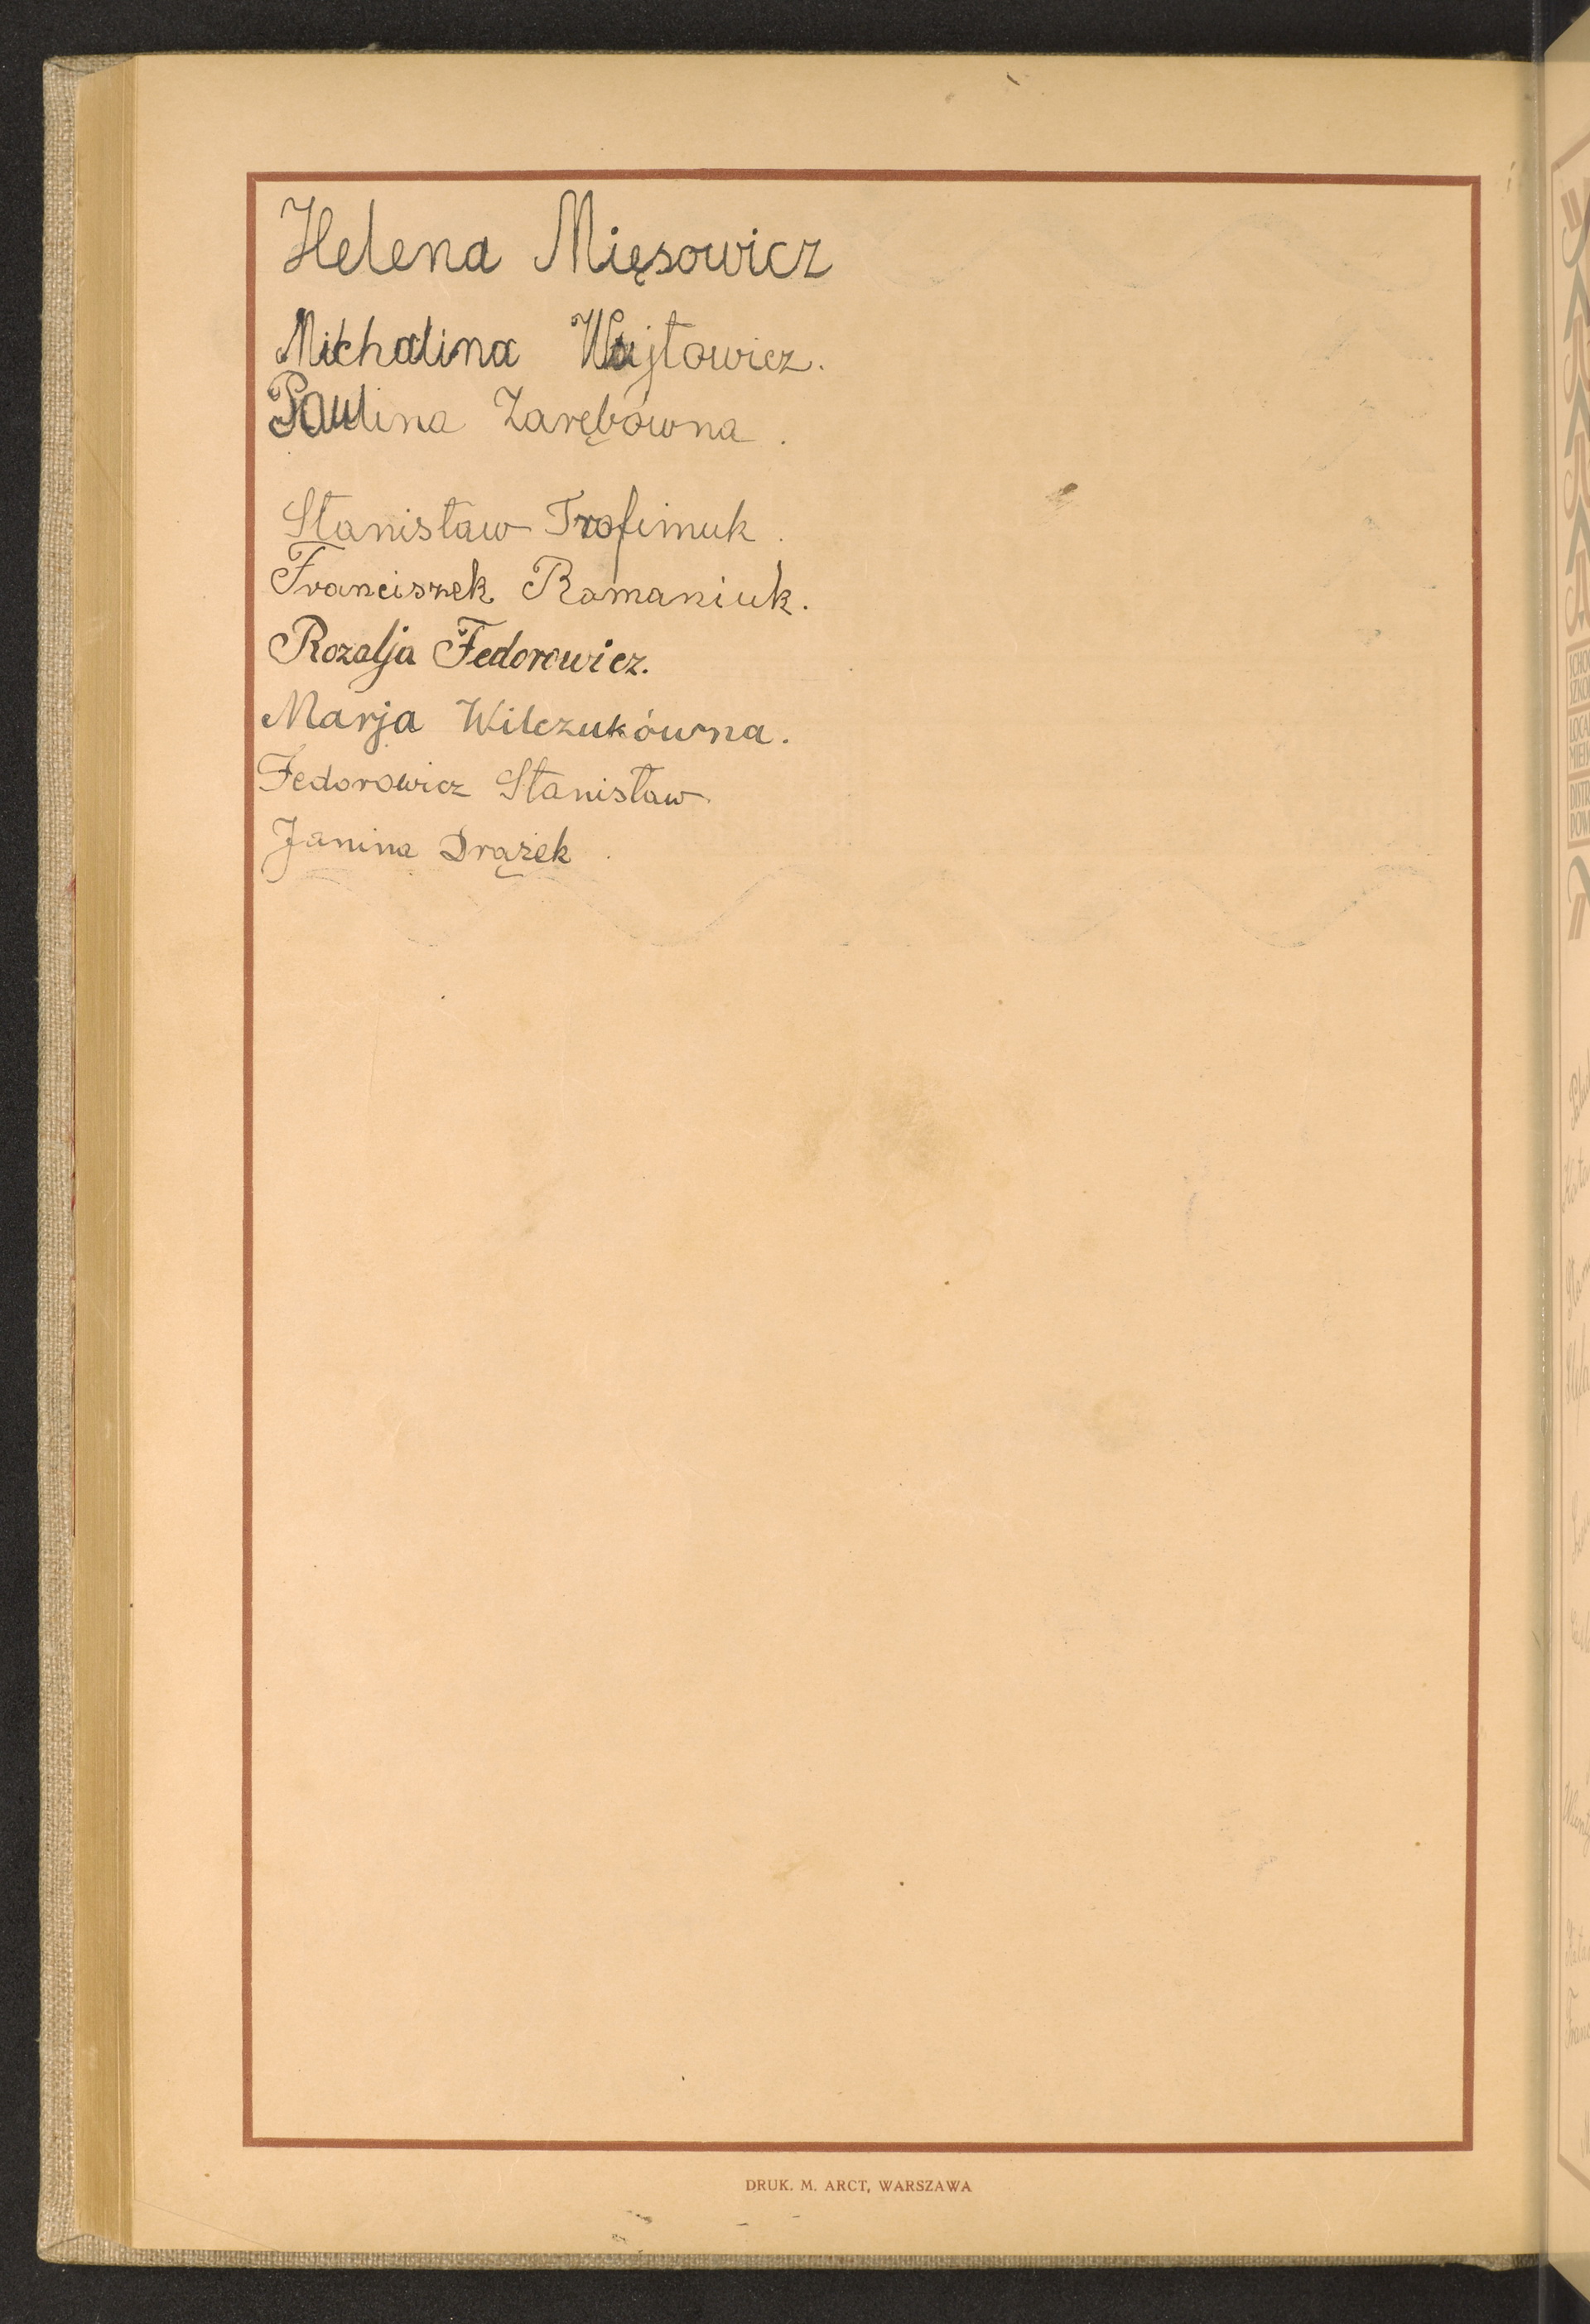 Helena Mięsowicz
Michalina Wujtowicz.
Paulina Zarębówna.
Stanisław Trofimuk.
Franciszek Romaniuk.
Rozalja Fedorowicz.
Marja Wilczukówna.
Fedorowicz Stanisław
Janina Drążek.
DRUK. M. ARCT, WARSZAWA